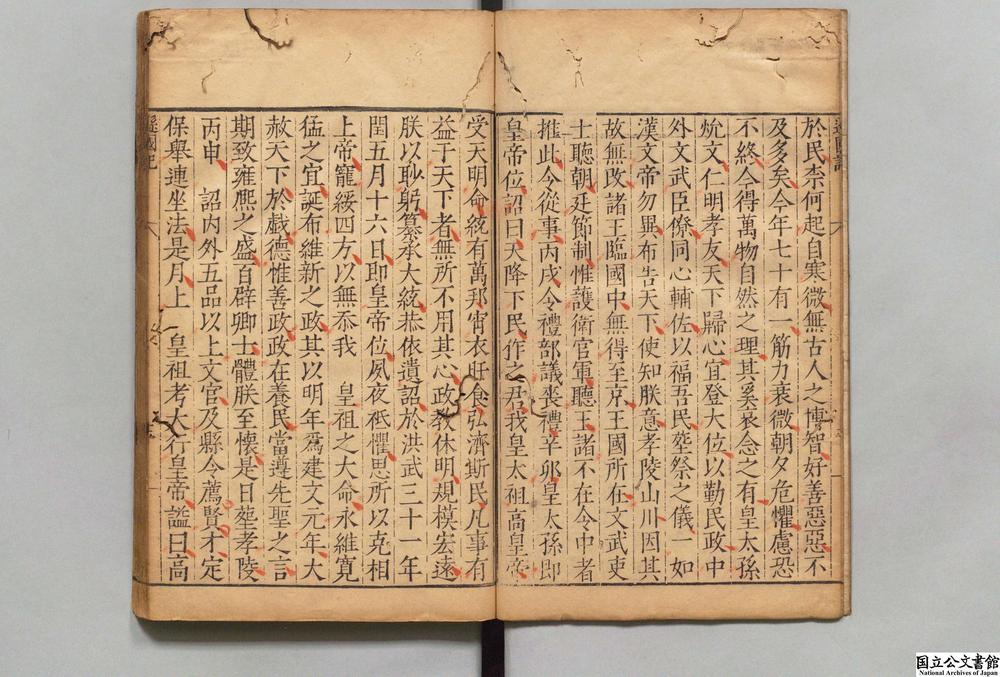 於民柰何起自寒微無古人之博智好善惡惡不
及多矣今年七十有一筋力衰微朝夕危懼慮恐
不終今得萬物自然之理其奚哀念之有皇太孫
允炆仁明孝友天下歸心宜登大位以勤民政中
外文武臣僚同心輔佐以福吾民塟祭之儀一如
漢文帝勿異布告天下使知朕意孝陵山川因其
故無改諸王臨國中無得至京王國所在文武吏
士聽朝廷節制惟護衛官軍聽王諸不在令中者
推此令從事丙戌令禮部議喪禮辛卯皇太孫即
皇帝位詔曰天降下民作之君我皇太祖高皇帝
受天明命統有萬邦宵衣旰食弘濟斯民凡事有
益于天下者無所不用其心政教休明規模宏遠
朕以眇躬纂承大統恭依遺詔於洪武三十一年
閏五月十六日即皇帝位夙夜祗懼思所以克相
上帝寵綏四方以無忝我 皇祖之大命永維寬
猛之宜誕布維新之政其以明年爲建文元年大
赦天下於戲德惟善政政在養民當遵先聖之言
期致雍熙之盛百辟卿士體朕至懷是日塟孝陵
丙申 詔內外五品以上文官及縣令薦賢才定
保舉連坐法是月上 皇祖考大行皇帝謚曰高
遜國記
国立公文書館
National Archives of Japan